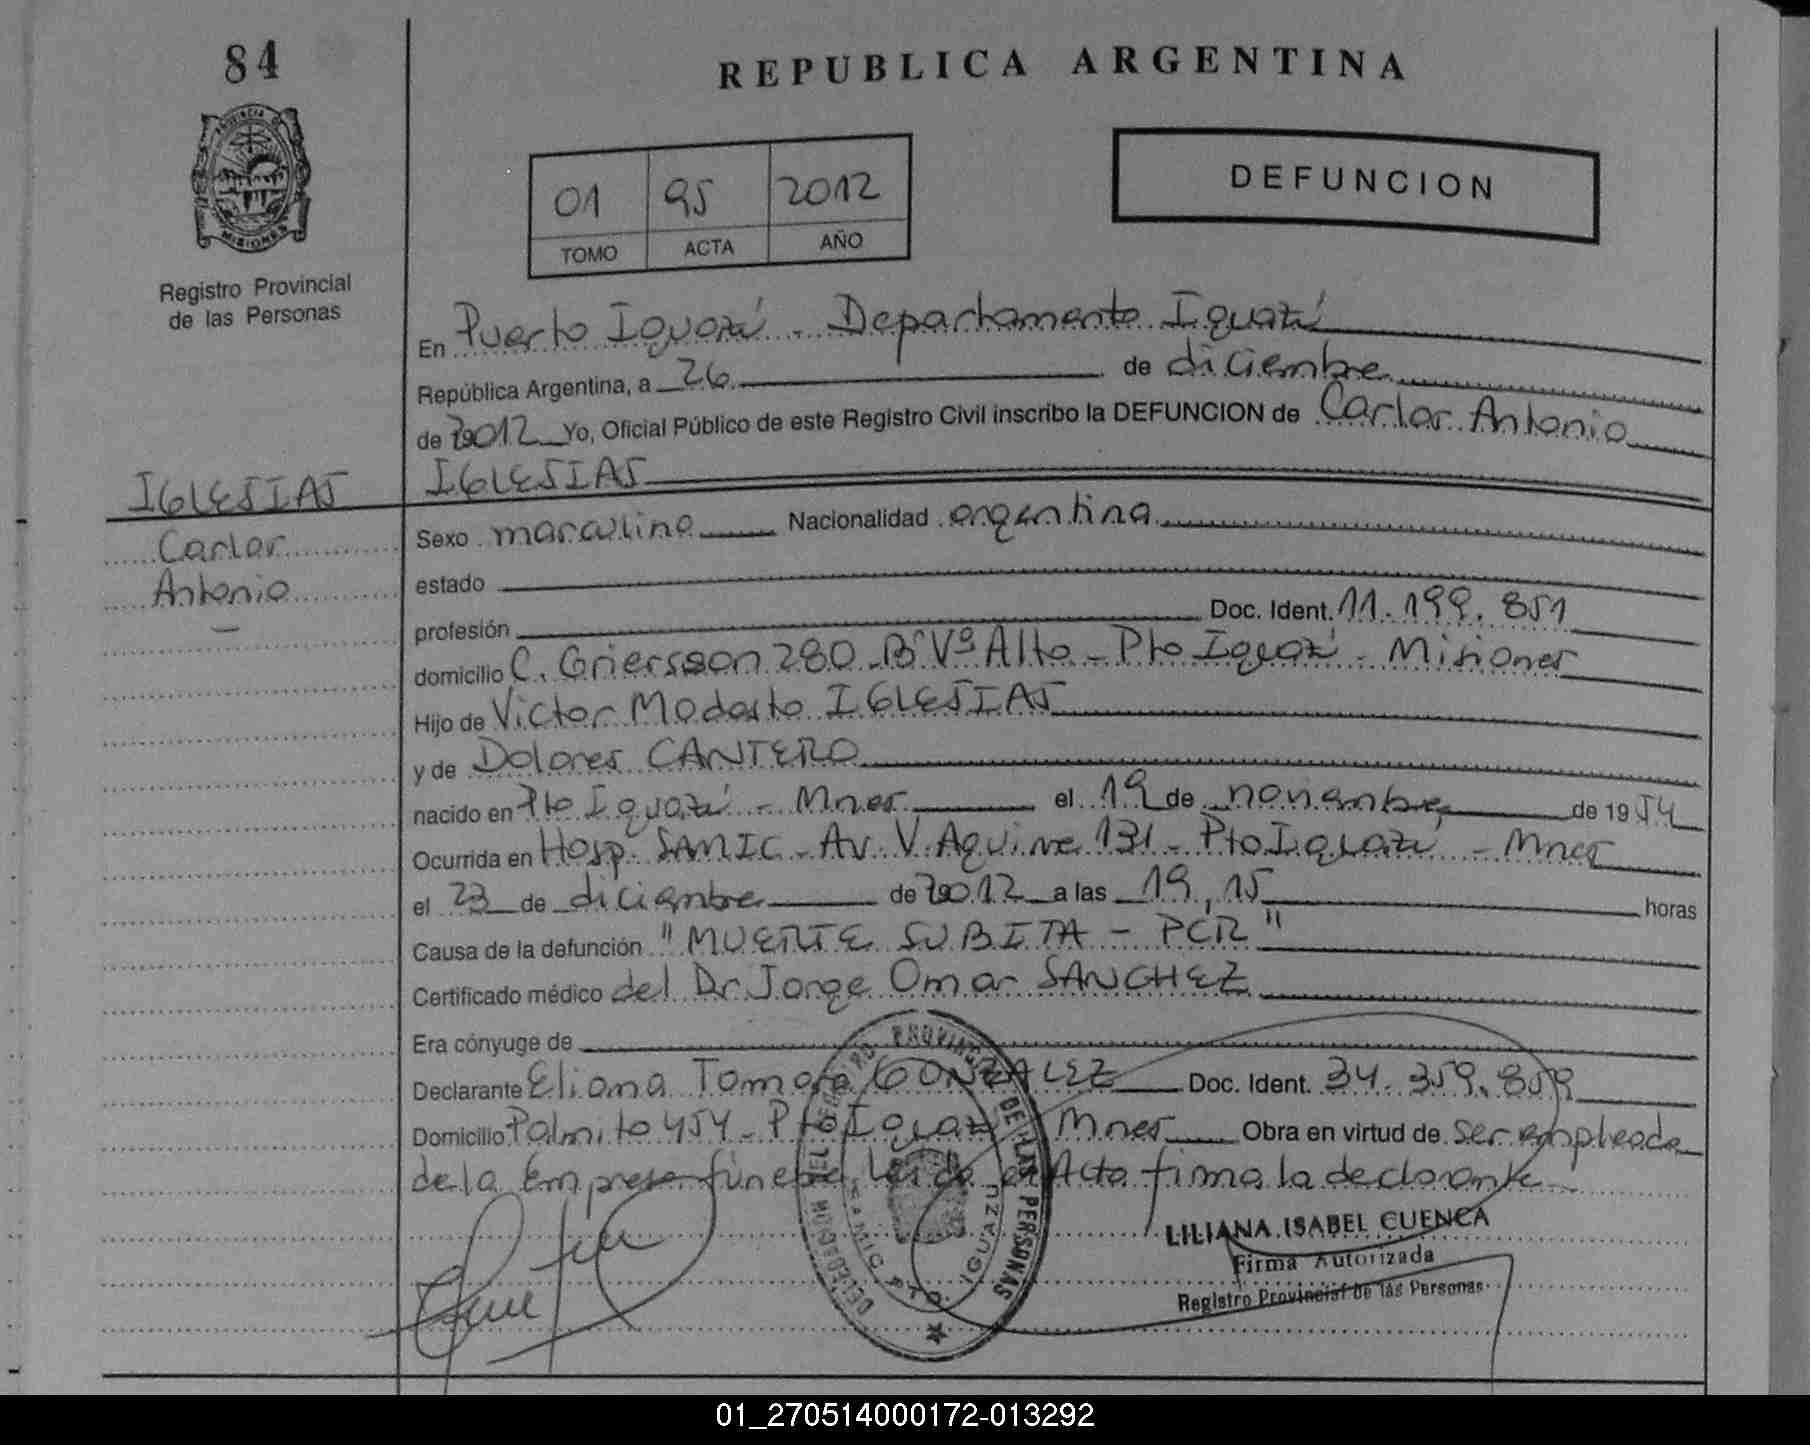 84
PROVINCIA DE
MISIONES
Registro Provincial
de las Personas
REPUBLICA ARGENTINA
01 95 2012
TOMO ACTA AÑO
DEFUNCION
En Puerto Iguazú - Departamento Iguazú
República Argentina, a 26 de diciembre
de 2012 Yo, Oficial Público de este Registro Civil inscribo la DEFUNCION de Carlos Antonio
IGLESIAS
IGLESIAS
Carlos
Antonio
Sexo masculino Nacionalidad argentina
estado
profesión Doc. Ident. 11.199.851
domicilio C. Griersson 280 - Bº Vª Alta - Pto Iguazú - Misiones
Hijo de Victor Modesto IGLESIAS
y de Dolores CANTERO
nacido en Pto Iguazú - Mnes el 19 de noviembre de 1954
Ocurrida en Hosp. SAMIC - Av. V. Aquino 131 - Pto Iguazú - Mnes
el 23 de diciembre de 2012 a las 19,15 horas
Causa de la defunción "MUERTE SUBITA - PCR"
Certificado médico del Dr Jorge Omar SANCHEZ
Era cónyuge de
Declarante Eliana Tamara GONZALEZ Doc. Ident. 34.359.859
Domicilio Palmito 454 - Pto Iguazú Mnes Obra en virtud de ser empleada
de la Empresa fúnebre Leída el Acta firma la declarante
DELEGACION DEL REGISTRO PROVINCIAL DE LAS PERSONAS
SAMIC PTO. IGUAZU
LILIANA ISABEL CUENCA
Firma Autorizada
Registro Provincial de las Personas
01_270514000172-013292